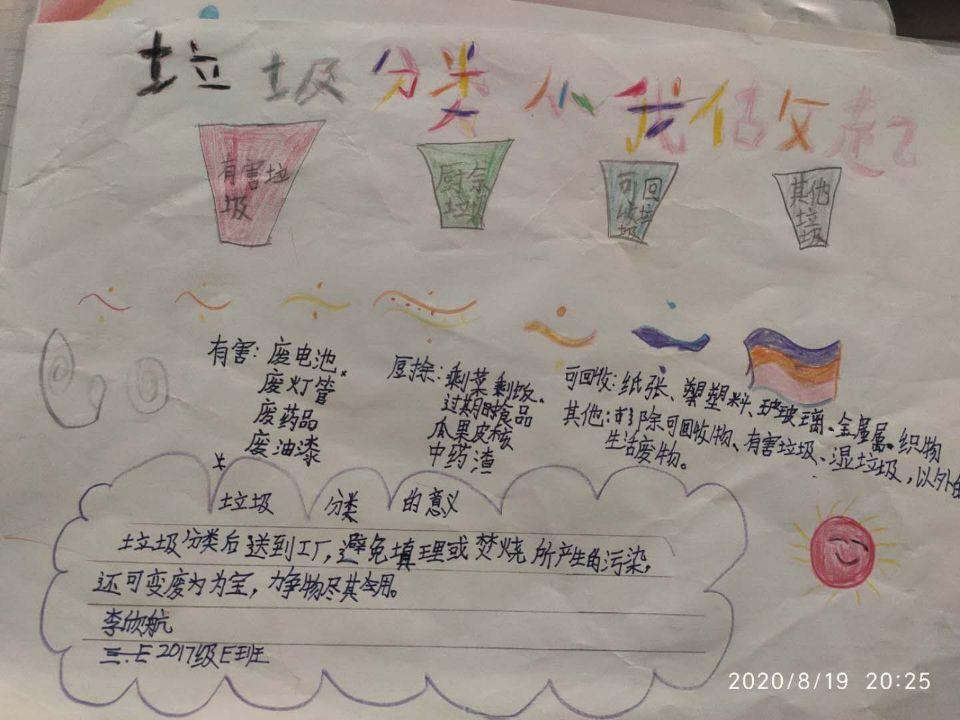 垃圾分类从我估攵起
有害垃
圾
厨余
垃圾
可回
收垃
圾
其他
垃
圾
有害: 废电池、
废灯管
废药品
废油漆
厨捨: 剩菜剩饭、
过期食品
瓜果皮核
中药渣
可回收: 纸张、塑塑料、玻玻璃、金属属、织物
其他: 除可回收物、有害垃圾、湿垃圾,以外的
生活废物。
垃圾 分类 的意义
垃圾分类后送到工厂,避免填理或焚烧所产生的污染,
还可变废为为宝,力争物尽其用。
李欣航
三.E 2017级E班
2020/8/19 20:25